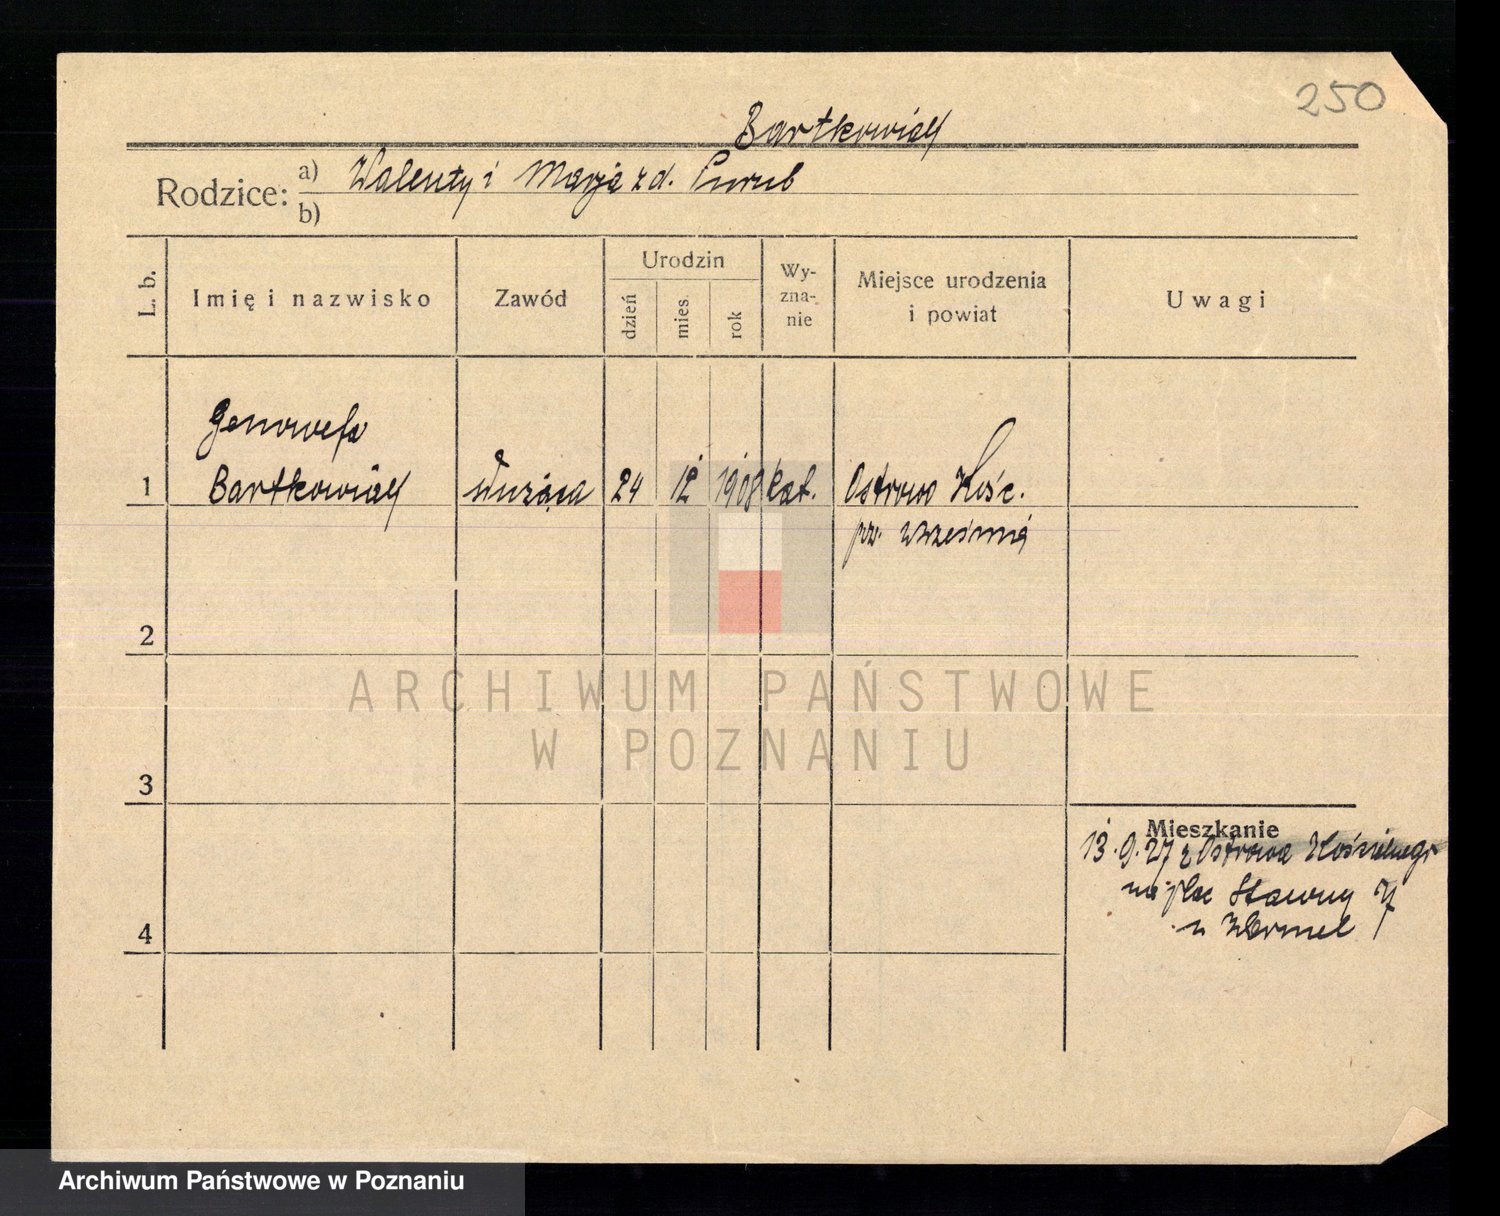 250
Bartkowiak
Rodzice: a) Walenty i Marja z d.
b)
L. b.
Imię i nazwisko
Zawód
Urodzin
dzień
mies.
rok
Wy-
zna-
nie
Miejsce urodzenia
i powiat
Uwagi
Genowefa
1 Bartkowiak służąca 24 12 1908 kat. Ostrowo Kośc.
pw. Września
2
ARCHIWUM PAŃSTWOWE
W POZNANIU
3
Mieszkanie
13.9.27 z Ostrowa Kościelnego
na plac Stawny
4
u
Archiwum Państwowe w Poznaniu